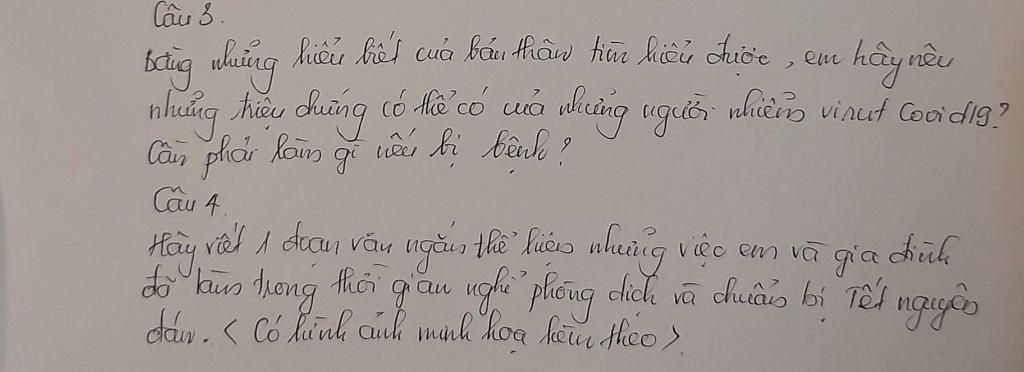 Câu 3.
bằng những hiểu biết của bản thân tìm hiểu được, em hãy nêu
những triệu chứng có thể có của những người nhiễm virut Covid19?
Cần phải làm gì nếu bị bệnh?
Câu 4.
Hãy viết 1 đoạn văn ngắn thể hiện những việc em và gia đình
đã làm trong thời gian nghỉ phòng dịch và chuẩn bị Tết nguyên
đán. < Có hình ảnh minh hoạ kèm theo >